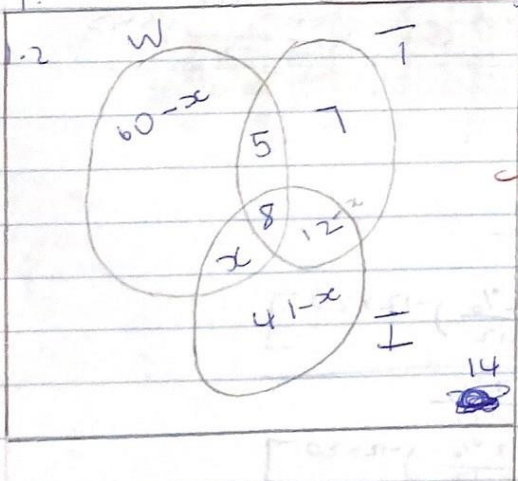 1.2
W
T
60-x
7
5
8
12
x
41-x
I
14